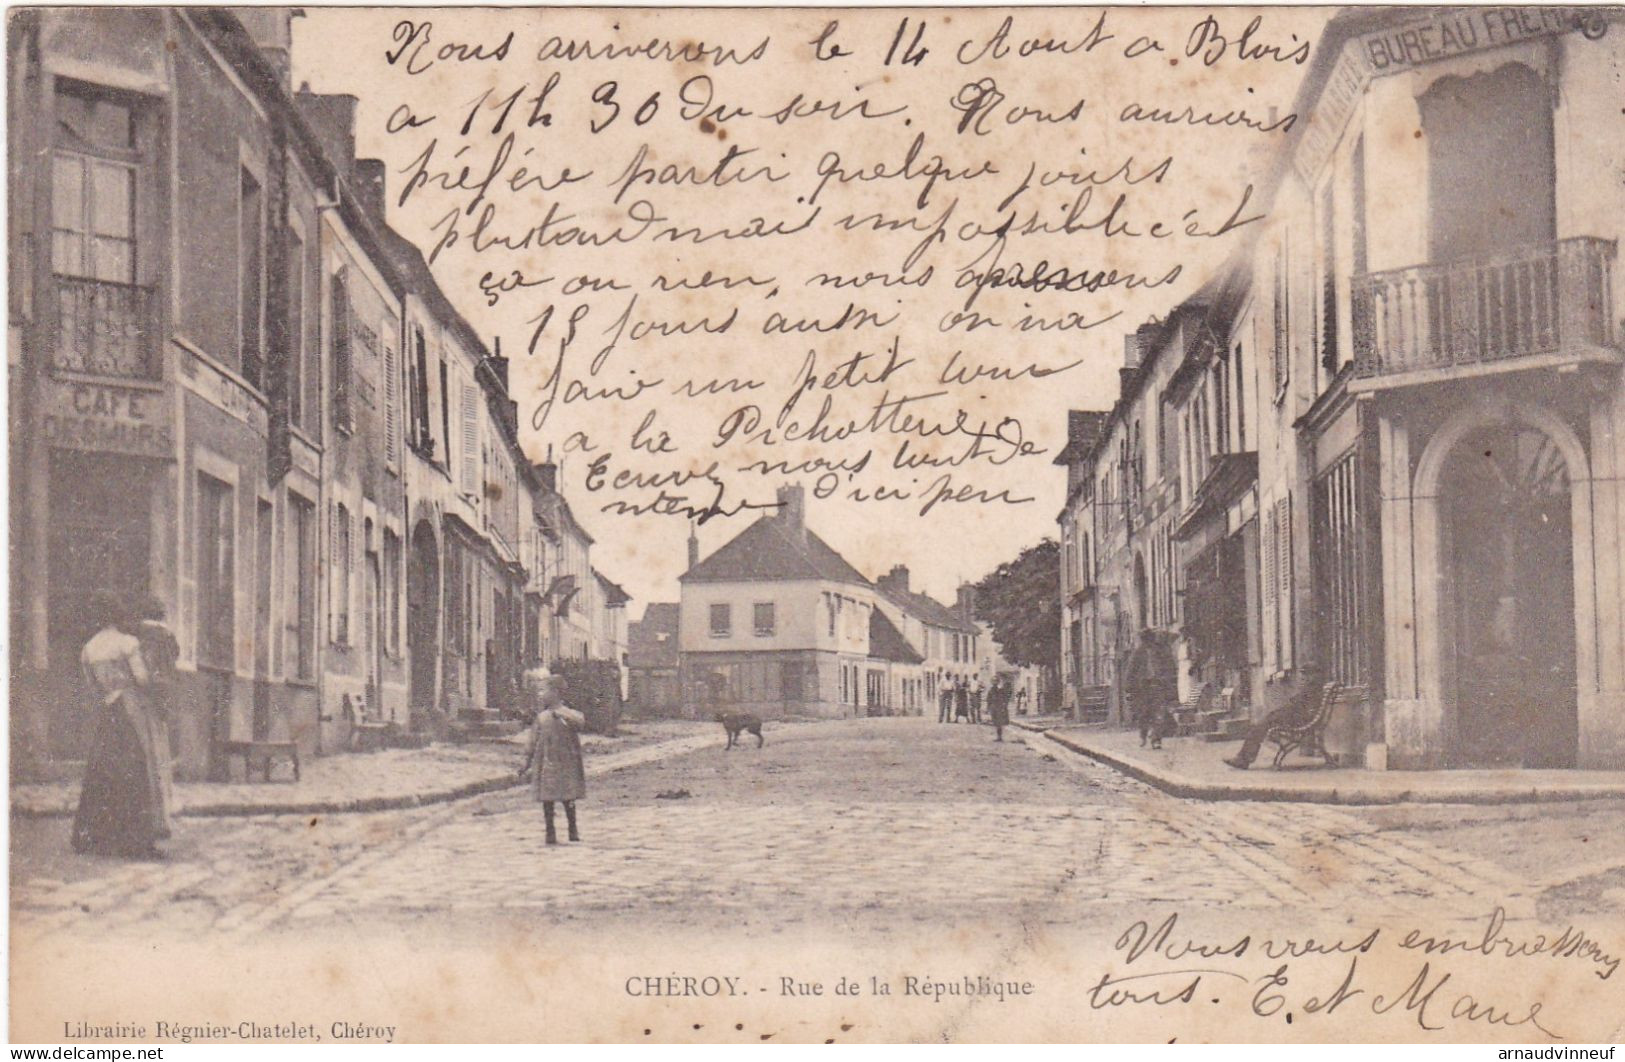 Nous arriverons le 14 Aout a Blois
a 11h 30 du soir. Nous aurions
préfére partir quelque jours
plustard mai impossible c'ét
ça ou rien, nous avons
15 jours aussi on ira
fair un petit tour
a la Pichotterie
Ecrive nous tout de
d'ici peu
BUREAU
CAFE
CAFÉ
Vous vous embrassons
tous. E. et Marie
CHÉROY. - Rue de la République
Librairie Régnier-Chatelet, Chéroy
© arnaudvinneuf